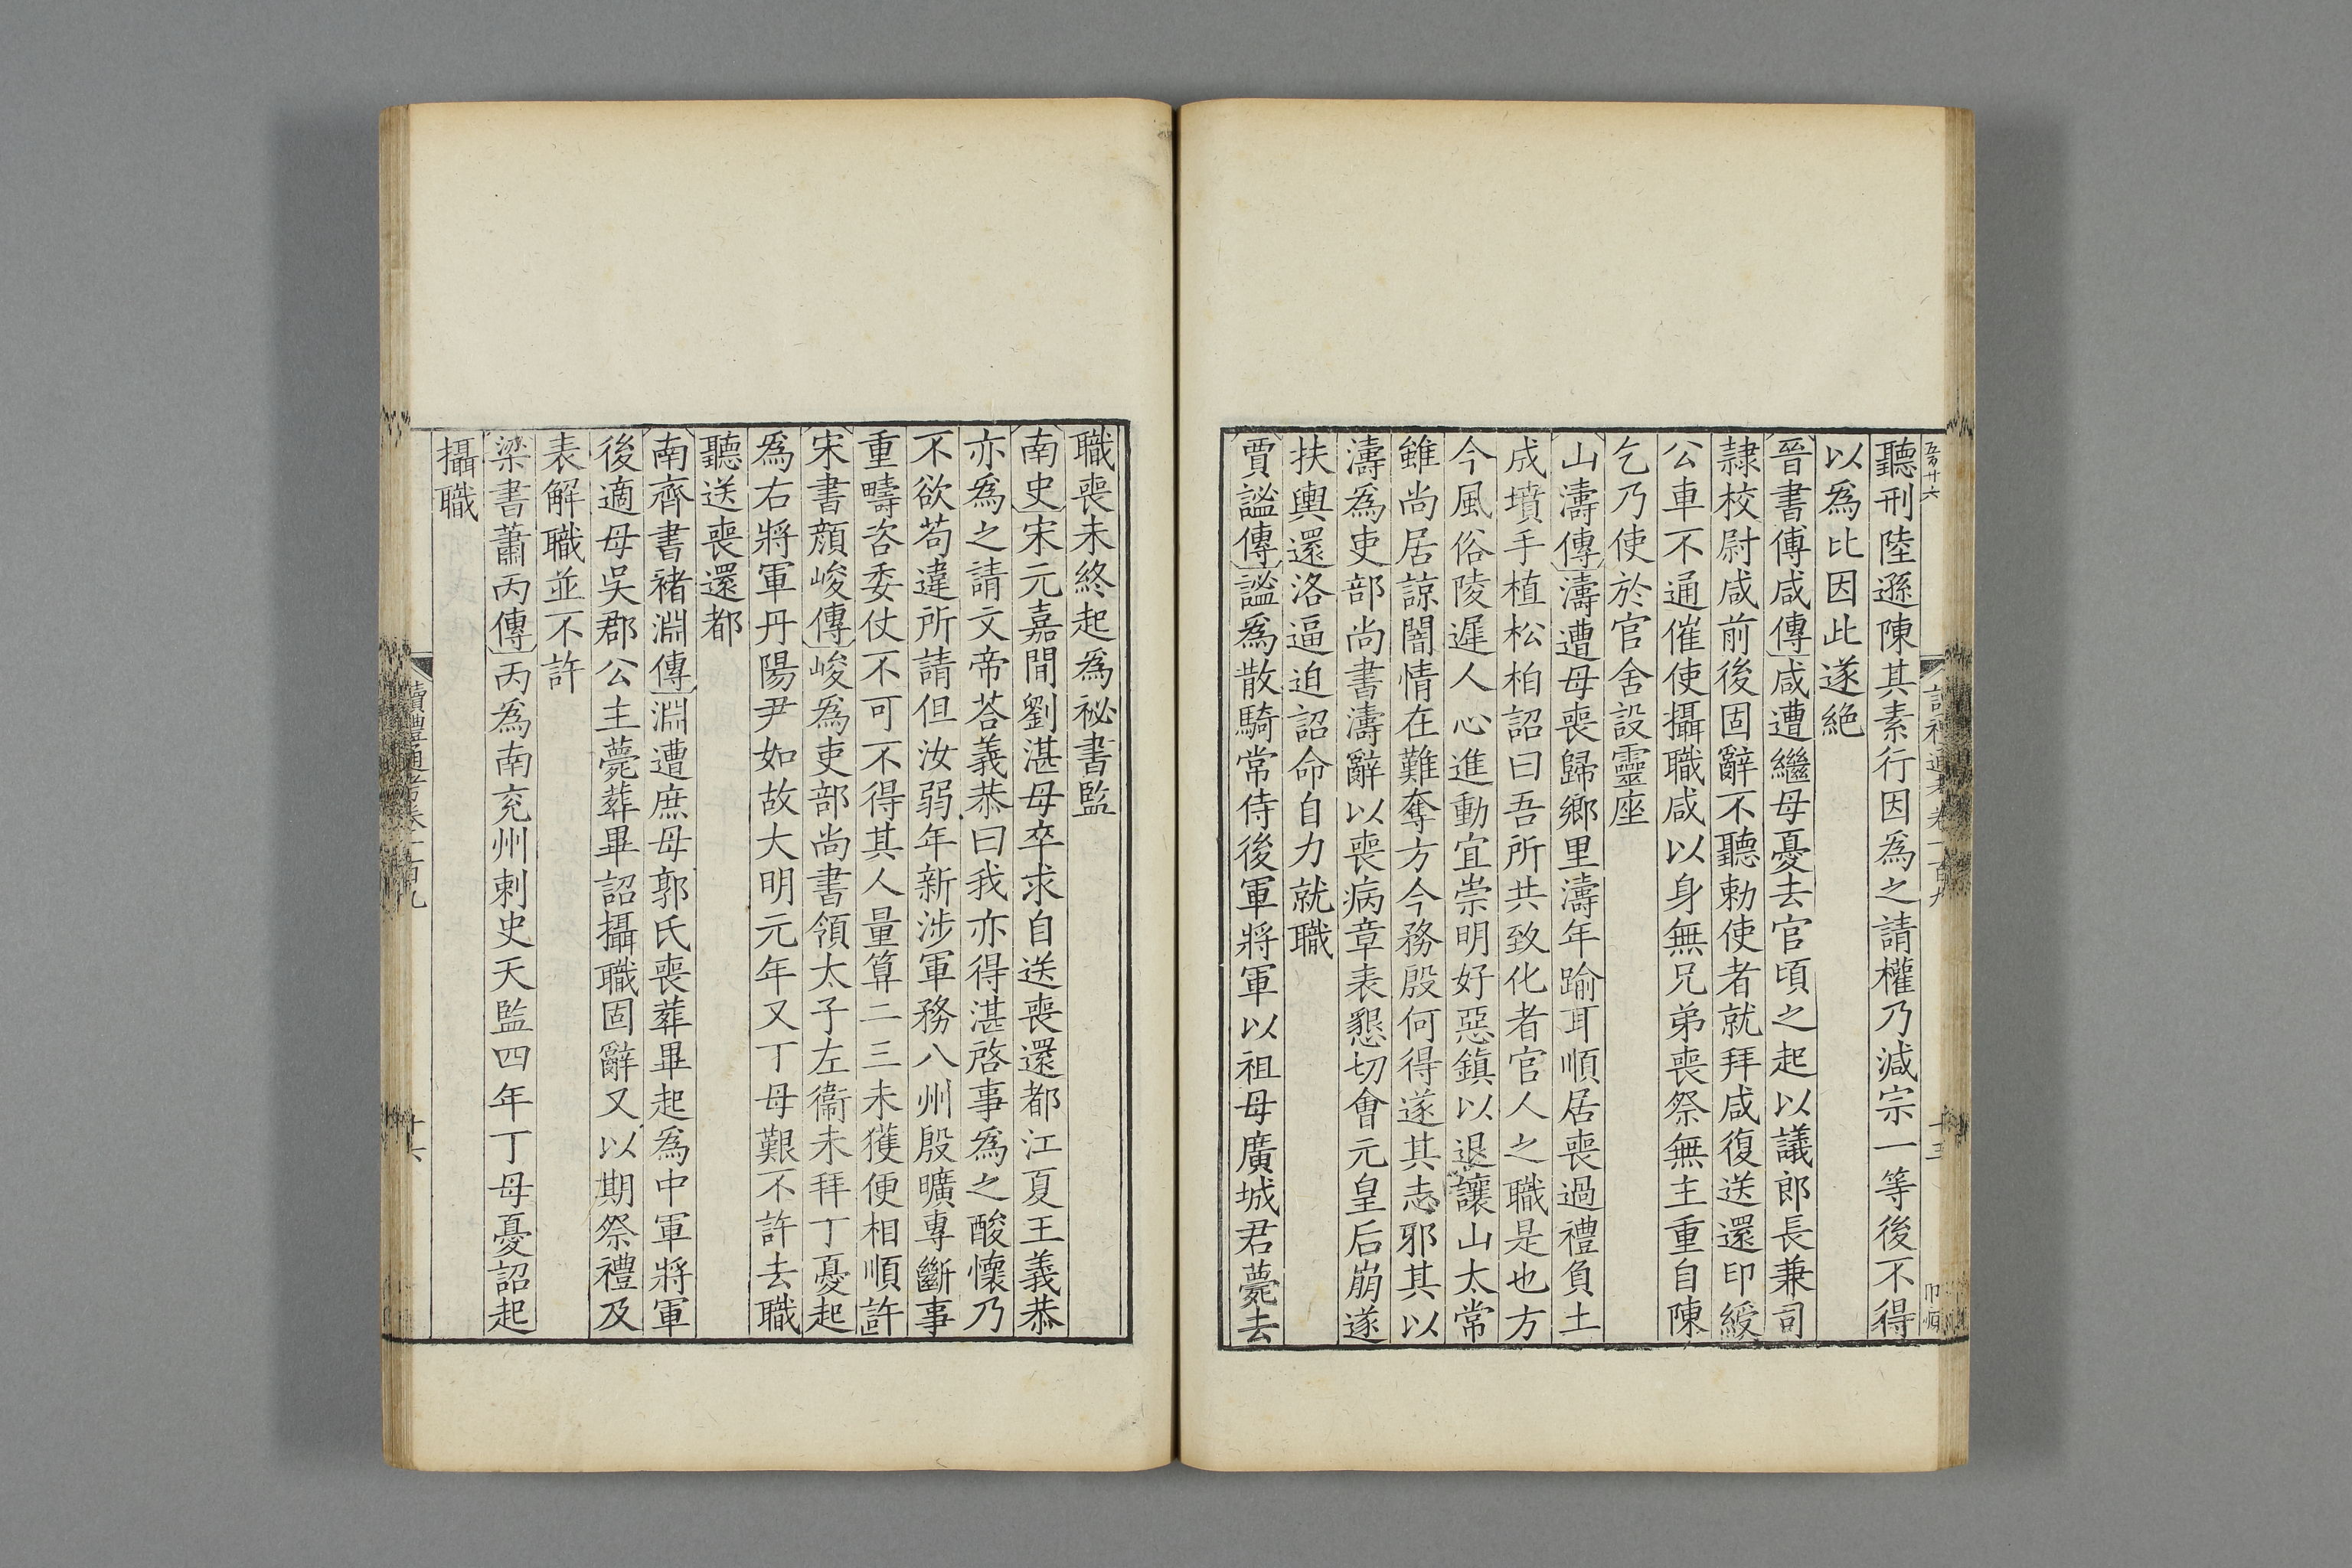 五百廿六
聽刑陸遜陳其素行因爲之請權乃減宗一等後不得
以爲比因此遂絶
晉書傅咸傳咸遭繼母憂去官頃之起以議郎長兼司
隸校尉咸前後固辭不聽勅使者就拜咸復送還印綬
公車不通催使攝職咸以身無兄弟喪祭無主重自陳
乞乃使於官舍設靈座
山濤傳濤遭母喪歸鄉里濤年踰耳順居喪過禮負土
成墳手植松柏詔曰吾所共致化者官人之職是也方
今風俗陵遲人心進動宜崇明好惡鎮以退讓山太常
雖尚居諒闇情在難奪方今務殷何得遂其志邪其以
濤爲吏部尚書濤辭以喪病章表懇切會元皇后崩遂
扶輿還洛逼迫詔命自力就職
賈謐傳謐爲散騎常侍後軍將軍以祖母廣城君薨去
職喪未終起爲祕書監
南史宋元嘉間劉湛母卒求自送喪還都江夏王義恭
亦爲之請文帝荅義恭曰我亦得湛啓事爲之酸懷乃
不欲苟違所請但汝弱年新涉軍務八州殷曠專斷事
重疇咨委仗不可不得其人量算二三未獲便相順許
宋書顔峻傳峻爲吏部尚書領太子左衞未拜丁憂起
爲右將軍丹陽尹如故大明元年又丁母艱不許去職
聽送喪還都
南齊書褚淵傳淵遭庶母郭氏喪葬畢起爲中軍將軍
後適母吳郡公主薨葬畢詔攝職固辭又以期祭禮及
表解職並不許
梁書蕭丙傳丙爲南兖州刺史天監四年丁母憂詔起
攝職
讀禮通考卷一百九
十六